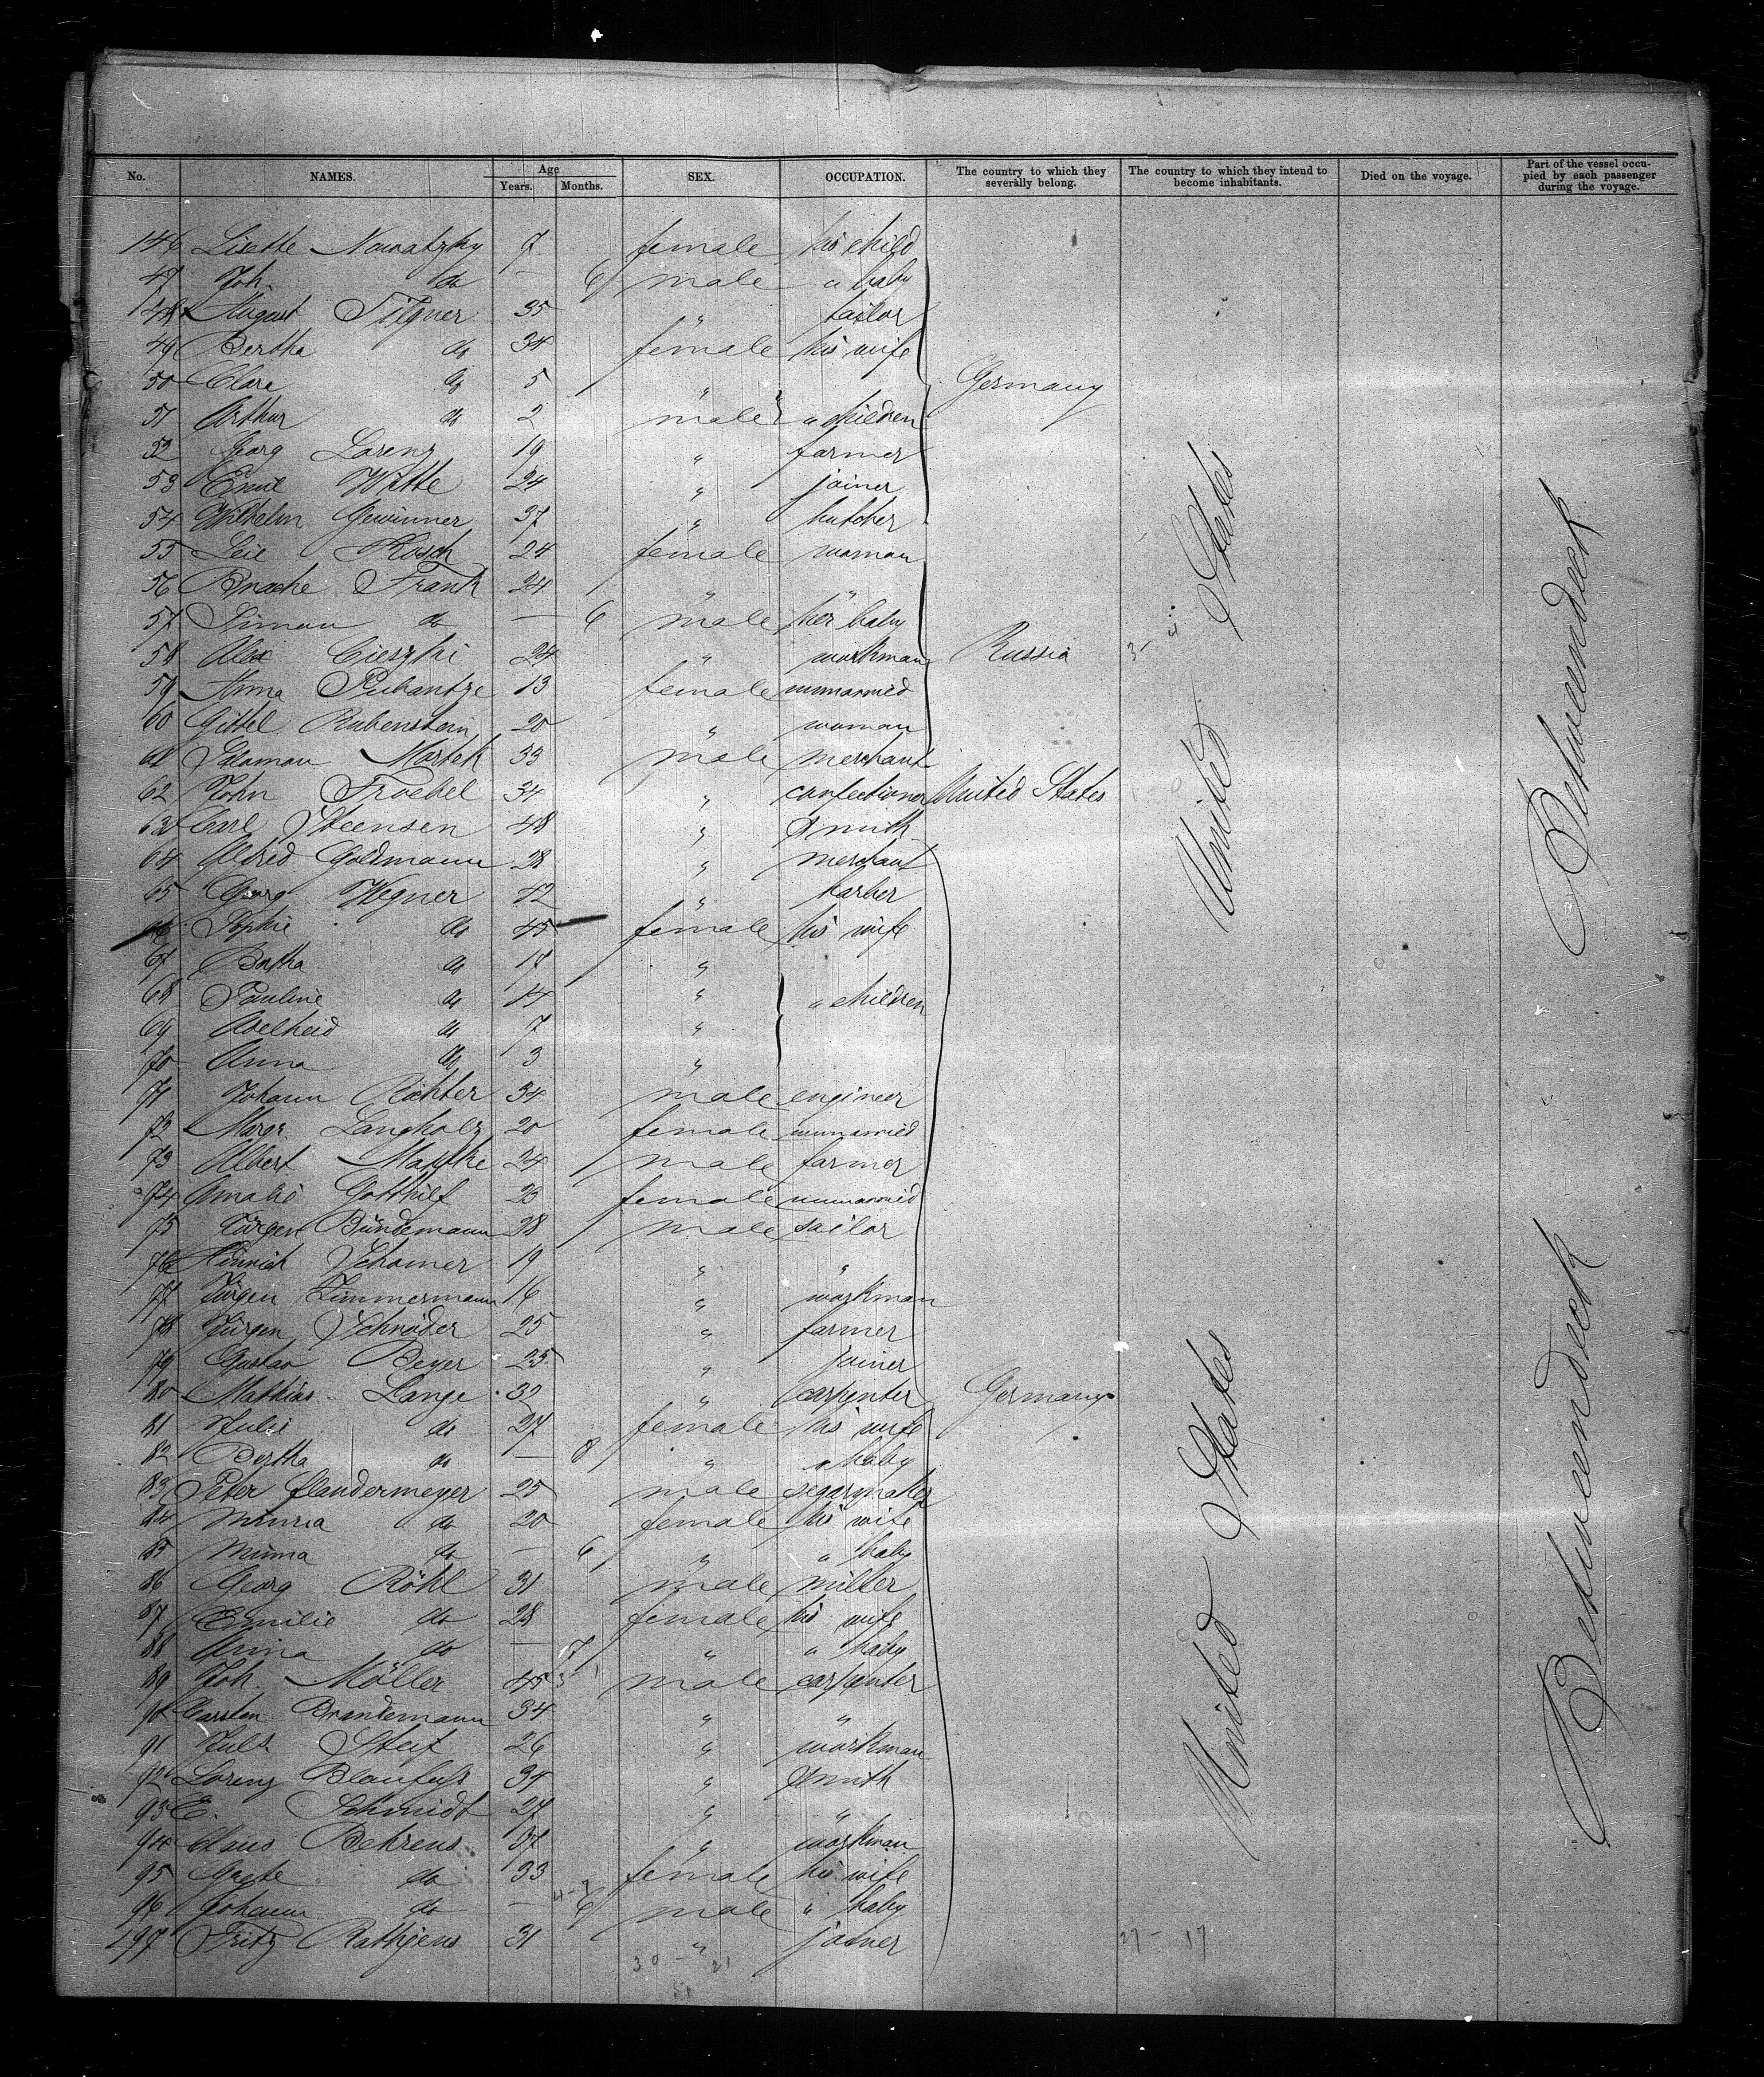 No. NAMES. Age Years. Months. SEX. OCCUPATION. The country to which they severally belong. The country to which they intend to become inhabitants. Died on the voyage. Part of the vessel occupied by each passenger during the voyage.
146 Lisette Nowatzky 7 female his child
47 Joh. do — 6 male " baby
148 August Tilgner 35 " tailor
49 Bertha do 34 female his wife
50 Clara do 5 " Germany
51 Arthur do 2 male " children
52 Georg Lorenz 19 " farmer
53 Emil Witte 24 " joiner
54 Wilhelm Gewinner 37 " butcher
55 Leie Kosch 24 female woman
56 Brache Frank 24 " "
57 Siman do — 6 male her baby
58 Alex Cieszki 24 " workman Russia
59 Anna 13 female unmarried
60 Gittel Rubenstein 20 " woman
61 Salamon Martek 33 male merchant
62 John Froebel 34 " confectioner United States
63 Carl Steensen 48 " Smith
64 Alfred Goldmann 28 " merchant
65 Georg Wegner 42 " barber
66 Sophie do 45 female his wife
67 Bertha do 17 "
68 Pauline do 14 " " children
69 Adelheid do 7 "
70 Anna do 3 "
71 Johann Richter 34 male engineer
72 Margr. Langholz 20 female unmarried
73 Albert 24 male farmer
74 Amalie Gotthilf 23 female unmarried
75 Jürgen Bündemann 28 male sailor
76 Heinrich Schomer 19 " "
77 Jürgen Zimmermann 16 " workman
78 Jürgen Schröder 25 " farmer
79 Gustav Beyer 25 " joiner
80 Mathias Lange 32 " carpenter Germany
81 Julie do 27 female his wife
82 Bertha do — 8 " " baby
83 Peter Flandermeyer 25 male segarmaker
84 Minna do 20 female his wife
85 Minna do — 6 " " baby
86 Georg Röhl 31 male miller
87 Emilie do 28 female his wife
88 Anna do — 7 " " baby
89 Joh. Möller 45 male carpenter
90 Carsten Brandemann 34 " "
91 Juls. Steif 26 " workman
92 Lorenz Blaufuß 34 " Smith
93 E. Schmidt 27 " "
94 Claus Behrens 37 " workman
95 Grete do 33 female his wife
96 Johann do — 6 male " baby
197 Fritz Rathjens 31 " joiner
30 - 21
51
27 - 17
United States
United States
Betweendeck
Betweendeck